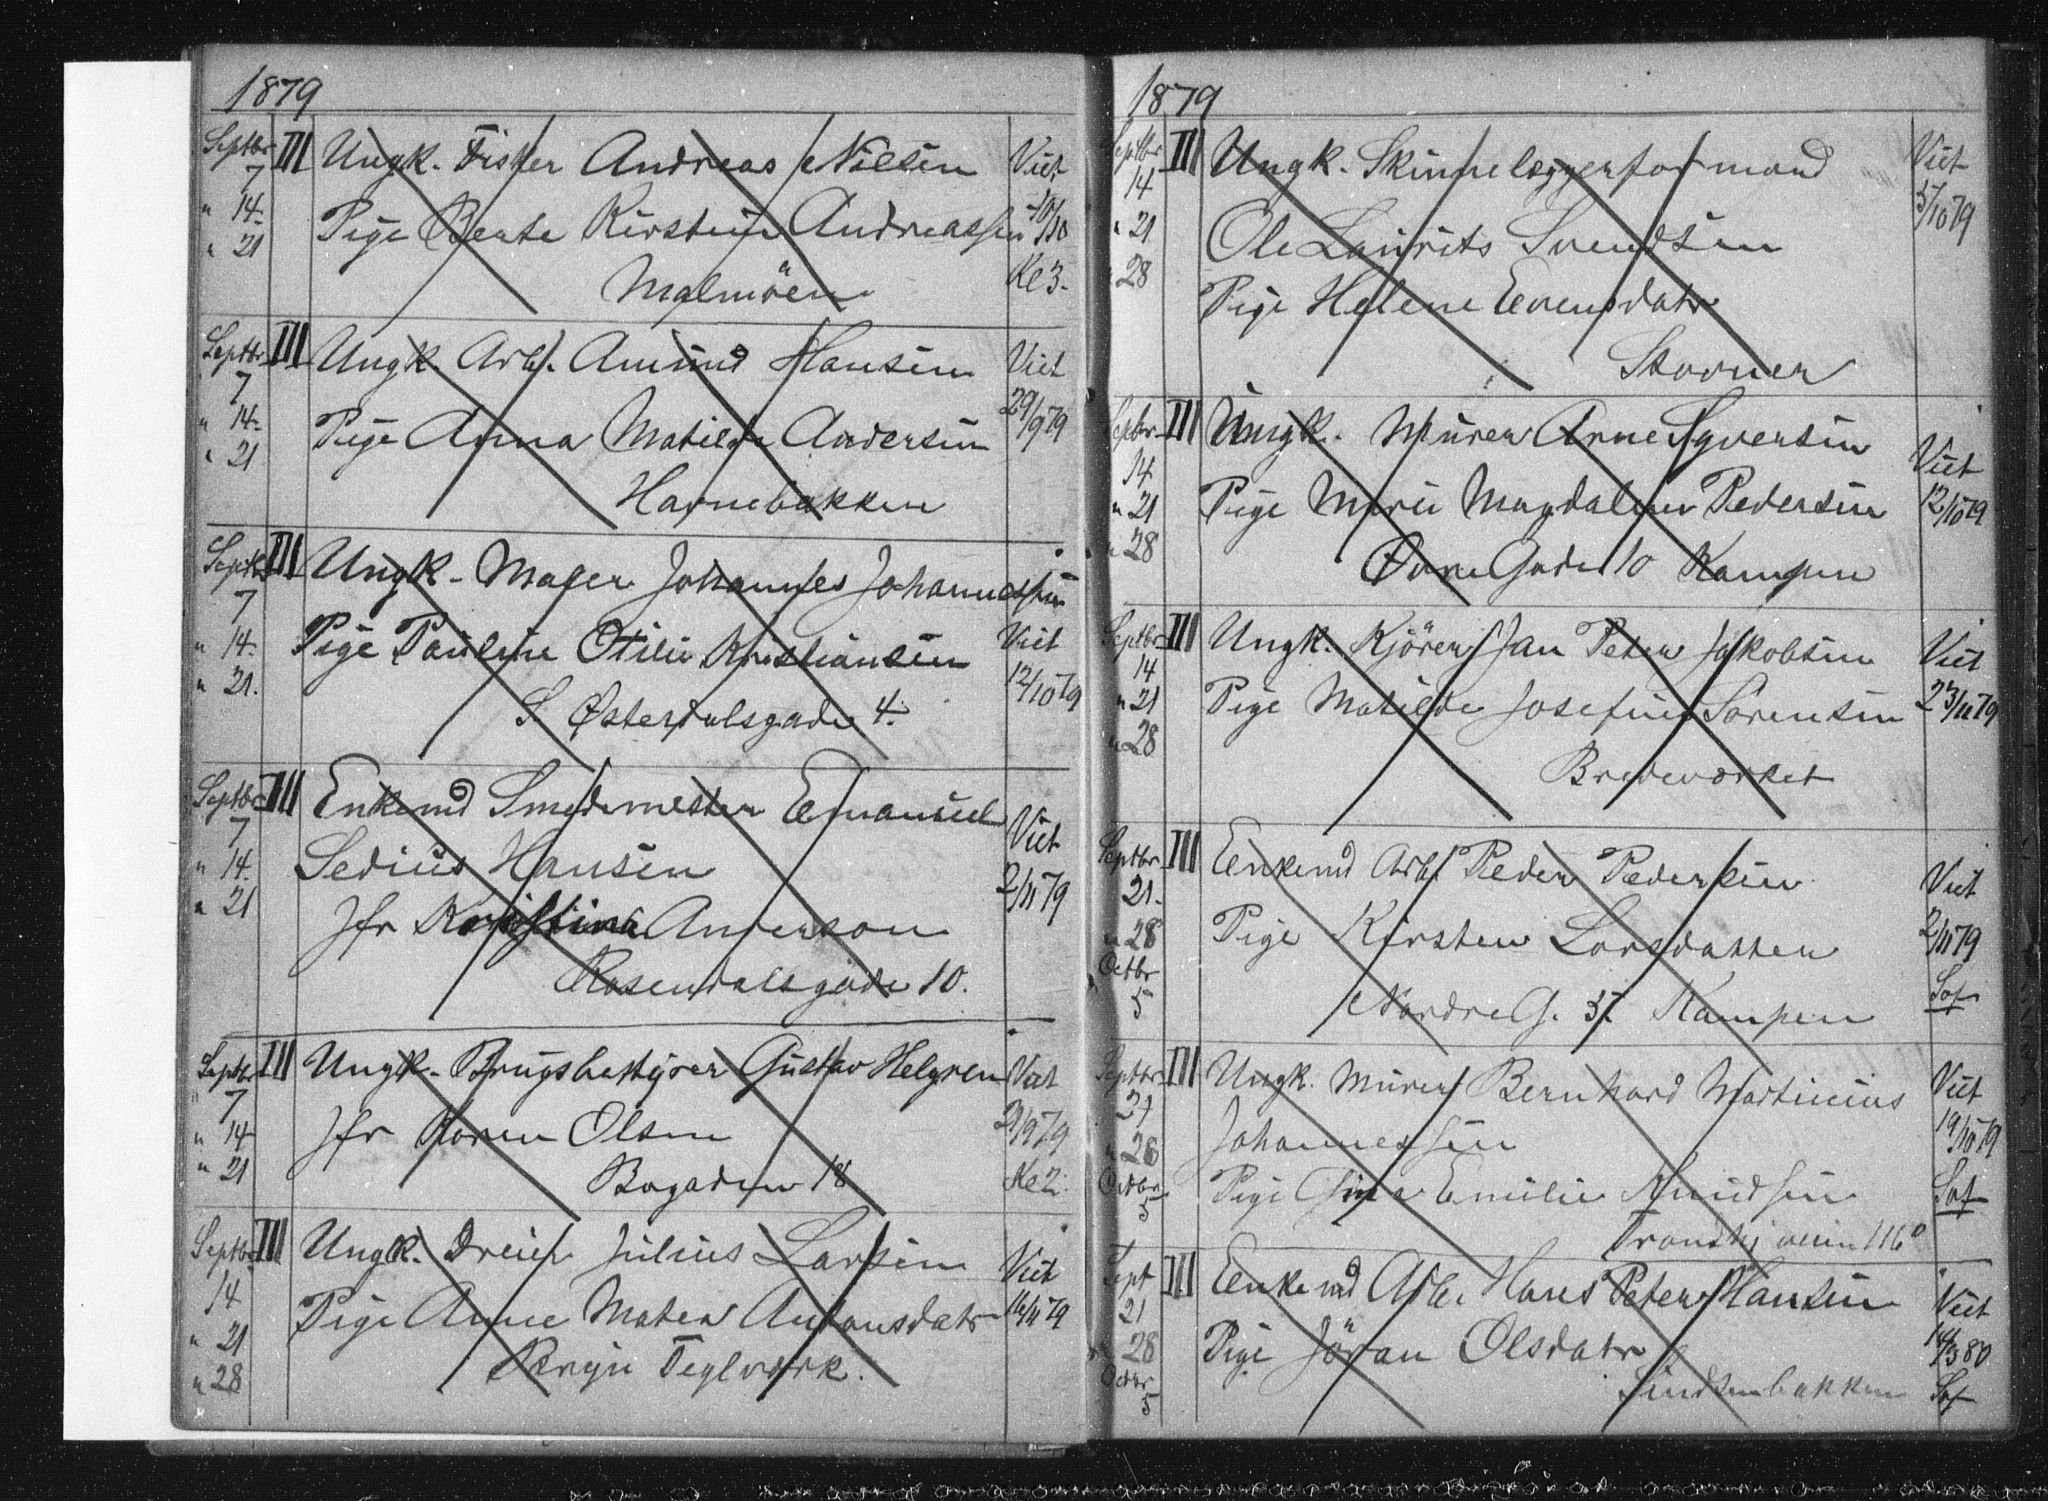 1879
Septbr III Ungk. Fisker Andreas Nilsen Viet
7
" 14 Pige Berte Kirstein Andreassen 10/10
" 21 Malmöen Kl 3.
Septbr III Ungk. Arb. Amund Hansen Viet
7 29/9 79
" 14 Pige Anna Matilde Andersen
" 21 Harnebakken
Septbr III Ungk. Maler Johannes Johannessen
7
" 14 Pige Pauline Otilie Kristiansen Viet
" 21. S. Østerdalsgade 4. 12/10 79
Septbr III Enkemd Smedemester Emanuel Viet
7
" 14 Sedius Hansen 2/11 79
" 21 Jfr Kristina Anderson
Rosendalsgade 10.
Septbr III Ungk. Brugsbestyrer Gustav Helgren Viet
7
" 14 Jfr Karen Olsen 21/9 79
" 21 Bogaden 18 Kl 2.
Septbr III Ungk. Dreier Julius Larsen Viet
14 Pige Anne Maten Antonsdatr 16/11 79
" 21 Bryn Teglværk.
" 28
1879
Septbr III Ungk. Skinnelæggerformand Viet
14 5/10 79
" 21 Ole Laurits Svendsen
" 28 Pige Helene Evensdatr
Stovner
Septbr III Ungk. Murer Arne Syversen
14 Viet
" 21 Pige Marie Magdalene Pedersen 12/10 79
" 28 Øvre Gade 10 Kampen
Septbr III Ungk. Kjörer Jan Peter Jakobsen Viet
14
" 21 Pige Matilde Josefine Sörensen 23/11 79
" 28 Bredeværket
Septbr III Enkemd Arb. Peder Pedersen Viet
21.
" 28 Pige Kirsten Larsdatter 2/11 79
Octbr Sof
5 Nordre G. 5. Kampen
Septbr III Ungk. Murer Bernhard Martinius Viet
21 19/10 79
" 28 Johannessen
Octbr Pige Gina Emilie Knudsen Sof
5
Trondhjveien 116
Sept III Enkemd Arb. Hans Peter Hansen Viet
21
28 Pige Jöran Olsdatr 14/3 80
Octbr Lindsenbakken Sof
5